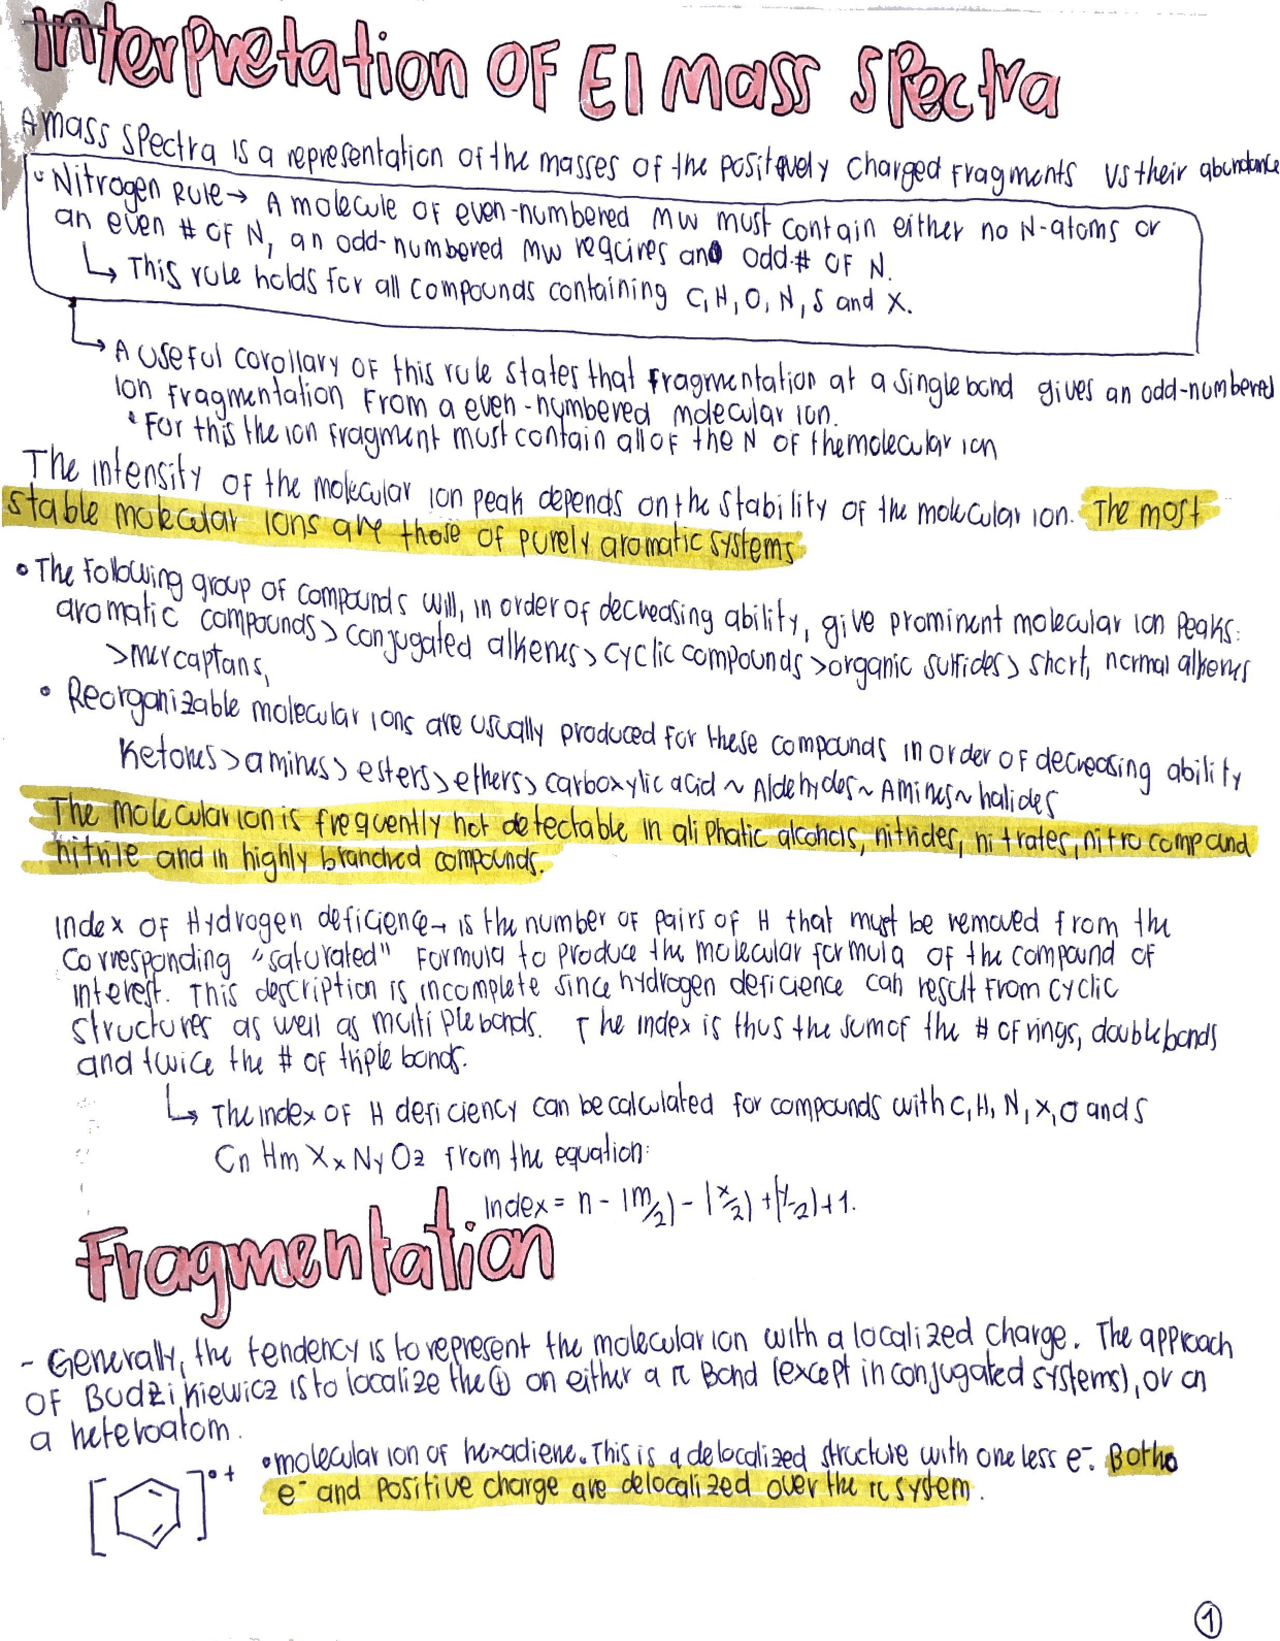 Interpretation OF EI Mass Spectra
A mass spectra is a representation of the masses of the positively charged fragments vs their abundance
Nitrogen Rule → A molecule of even-numbered MW must contain either no N-atoms or
an even # of N, an odd-numbered MW requires and odd # of N.
↳ This rule holds for all compounds containing C, H, O, N, S and X.
→ A useful corollary of this rule states that fragmentation at a single bond gives an odd-numbered
ion fragmentation from a even-numbered molecular ion.
* For this the ion fragment must contain all of the N of the molecular ion
The intensity of the molecular ion peak depends on the stability of the molecular ion. The most
stable molecular ions are those of purely aromatic systems
• The following group of compounds will, in order of decreasing ability, give prominent molecular ion peaks:
aromatic compounds > conjugated alkenes > cyclic compounds > organic sulfides > short, normal alkenes
> mercaptans,
• Reorganizable molecular ions are usually produced for these compounds in order of decreasing ability
Ketones > amines > esters > ethers > carboxylic acid ~ Aldehydes ~ Amines ~ halides
The molecular ion is frequently not detectable in aliphatic alcohols, nitrides, nitrates, nitro compound
nitrile and in highly branched compounds.
Index of Hydrogen deficience → is the number of pairs of H that must be removed from the
corresponding "saturated" formula to produce the molecular formula of the compound of
interest. This description is incomplete since hydrogen deficience can result from cyclic
structures as well as multiple bonds. The index is thus the sum of the # of rings, double bonds
and twice the # of triple bonds.
↳ The index of H deficiency can be calculated for compounds with C, H, N, X, O and S
Cn Hm Xx Ny Oz from the equation:
Index = n - (m/2) - (x/2) + (y/2) + 1.
Fragmentation
- Generally, the tendency is to represent the molecular ion with a localized charge. The approach
of Budzikiewicz is to localize the ⊕ on either a π Bond (except in conjugated systems), or on
a heteroatom.
• molecular ion of hexadiene. This is a delocalized structure with one less e⁻. Both
e⁻ and positive charge are delocalized over the π system.
[ ]•+
1